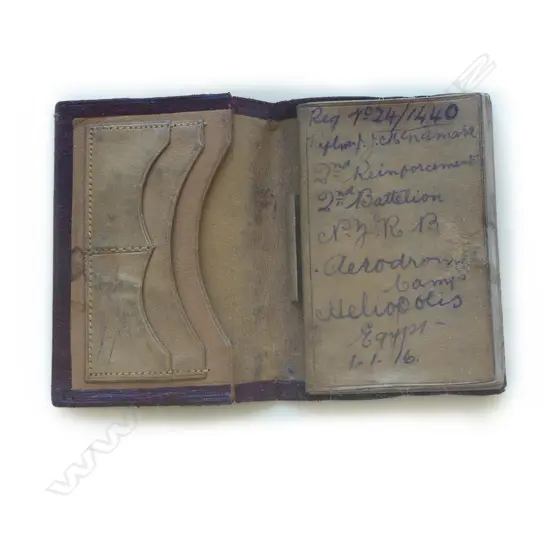 Reg Nº 24/1440
McNamara
2nd Reinforcement
2nd Battalion
N. Z R B
Aerodrome
Camp
Heliopolis
Egypt -
1.1.16.